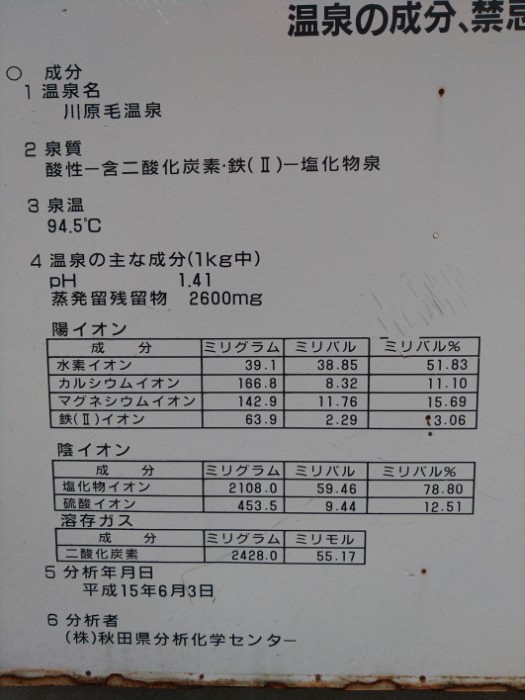 温泉の成分、禁忌
○ 成分
1 温泉名
川原毛温泉
2 泉質
酸性ー含二酸化炭素・鉄(Ⅱ)ー塩化物泉
3 泉温
94.5℃
4 温泉の主な成分(1kg中)
pH 1.41
蒸発留残留物 2600mg
陽イオン
成 分 ミリグラム ミリバル ミリバル%
水素イオン 39.1 38.85 51.83
カルシウムイオン 166.8 8.32 11.10
マグネシウムイオン 142.9 11.76 15.69
鉄(Ⅱ)イオン 63.9 2.29 3.06
陰イオン
成 分 ミリグラム ミリバル ミリバル%
塩化物イオン 2108.0 59.46 78.80
硫酸イオン 453.5 9.44 12.51
溶存ガス
成 分 ミリグラム ミリモル
二酸化炭素 2428.0 55.17
5 分析年月日
平成15年6月3日
6 分析者
(株)秋田県分析化学センター